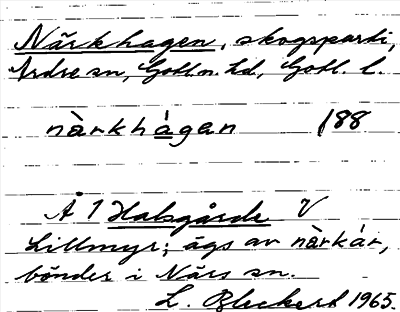 Närkhagen, skogsparti,
Ardre sn, Gotl. n. hd, Gotl. l.
nàrkhágen 188
Å 1 Halsgårde V
Lillmyr; ägs av nàrkár,
bönder i Närs sn.
L. Bleckert 1965.